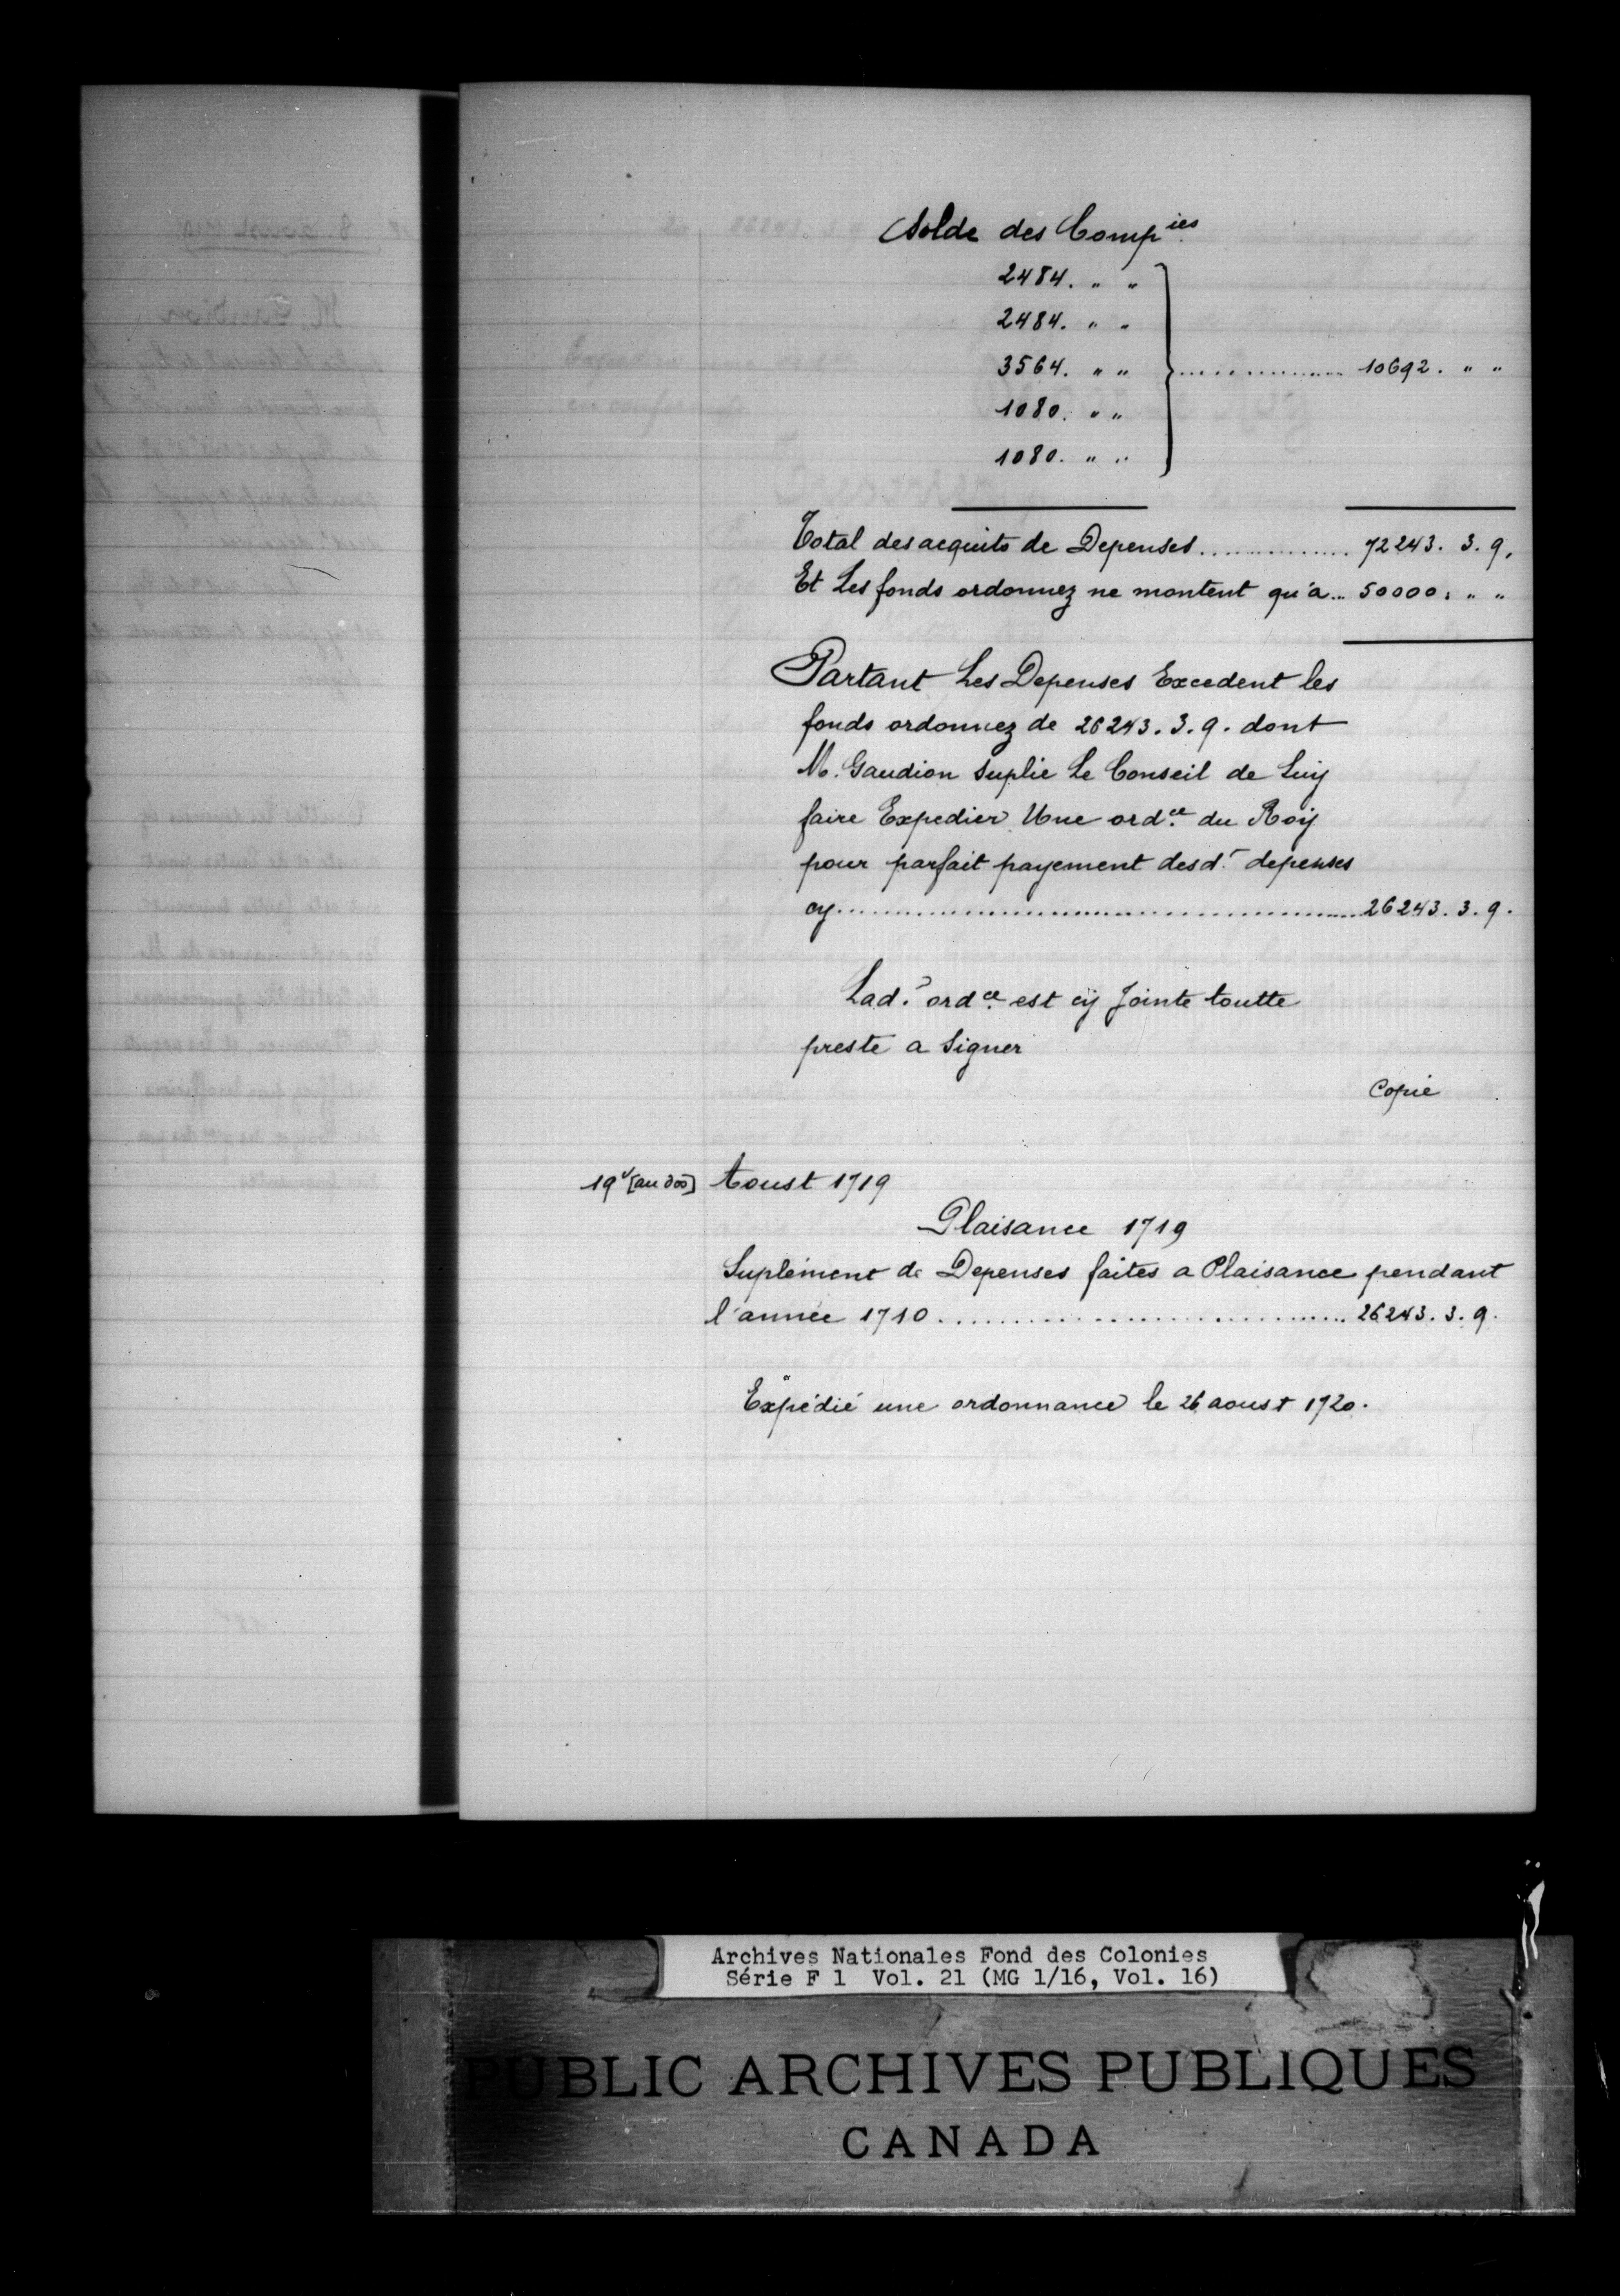 Solde des Comp.ies
2484. " "
2484. " "
3564. " " .................. 10692. " "
1080. " "
1080. " "
Total des acquits de Depenses............... 72243. 3. 9.
Et Les fonds ordonnez ne montent qu'a... 50000. " "
Partant Les Depenses Excedent les
fonds ordonnez de 26243. 3. 9. dont
M. Gaudion suplie Le Conseil de Luy
faire Expedier Une ord.ce du Roy
pour parfait payement desd.s depenses
cy............................................26243. 3. 9.
Lad.e ord.ce est cÿ Jointe toutte
preste a signer
Copie
19v [au dos] Aoust 1719
Plaisance 1719
Suplement de Depenses faites a Plaisance pendant
l'année 1710.................................26243. 3. 9.
Expédié une ordonnance le 26 aoust 1720.
Archives Nationales Fond des Colonies
Série F 1 Vol. 21 (MG 1/16, Vol. 16)
PUBLIC ARCHIVES PUBLIQUES
CANADA